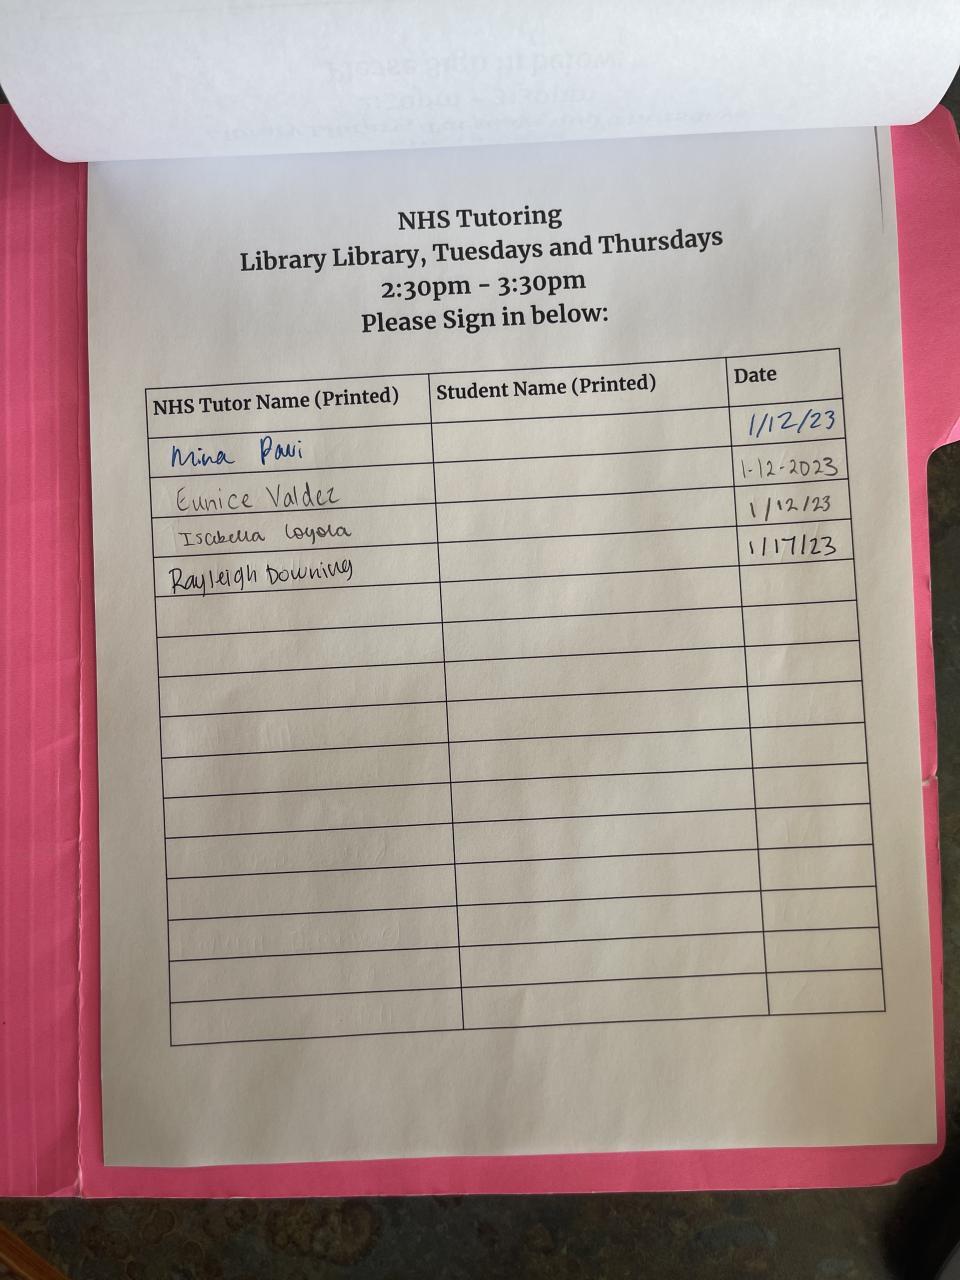 NHS Tutoring
Library Library, Tuesdays and Thursdays
2:30pm - 3:30pm
Please Sign in below:
NHS Tutor Name (Printed) Student Name (Printed) Date
Mina Pavi 1/12/23
Eunice Valdez 1-12-2023
Isabella Loyola 1/12/23
Rayleigh Downing 1/17/23